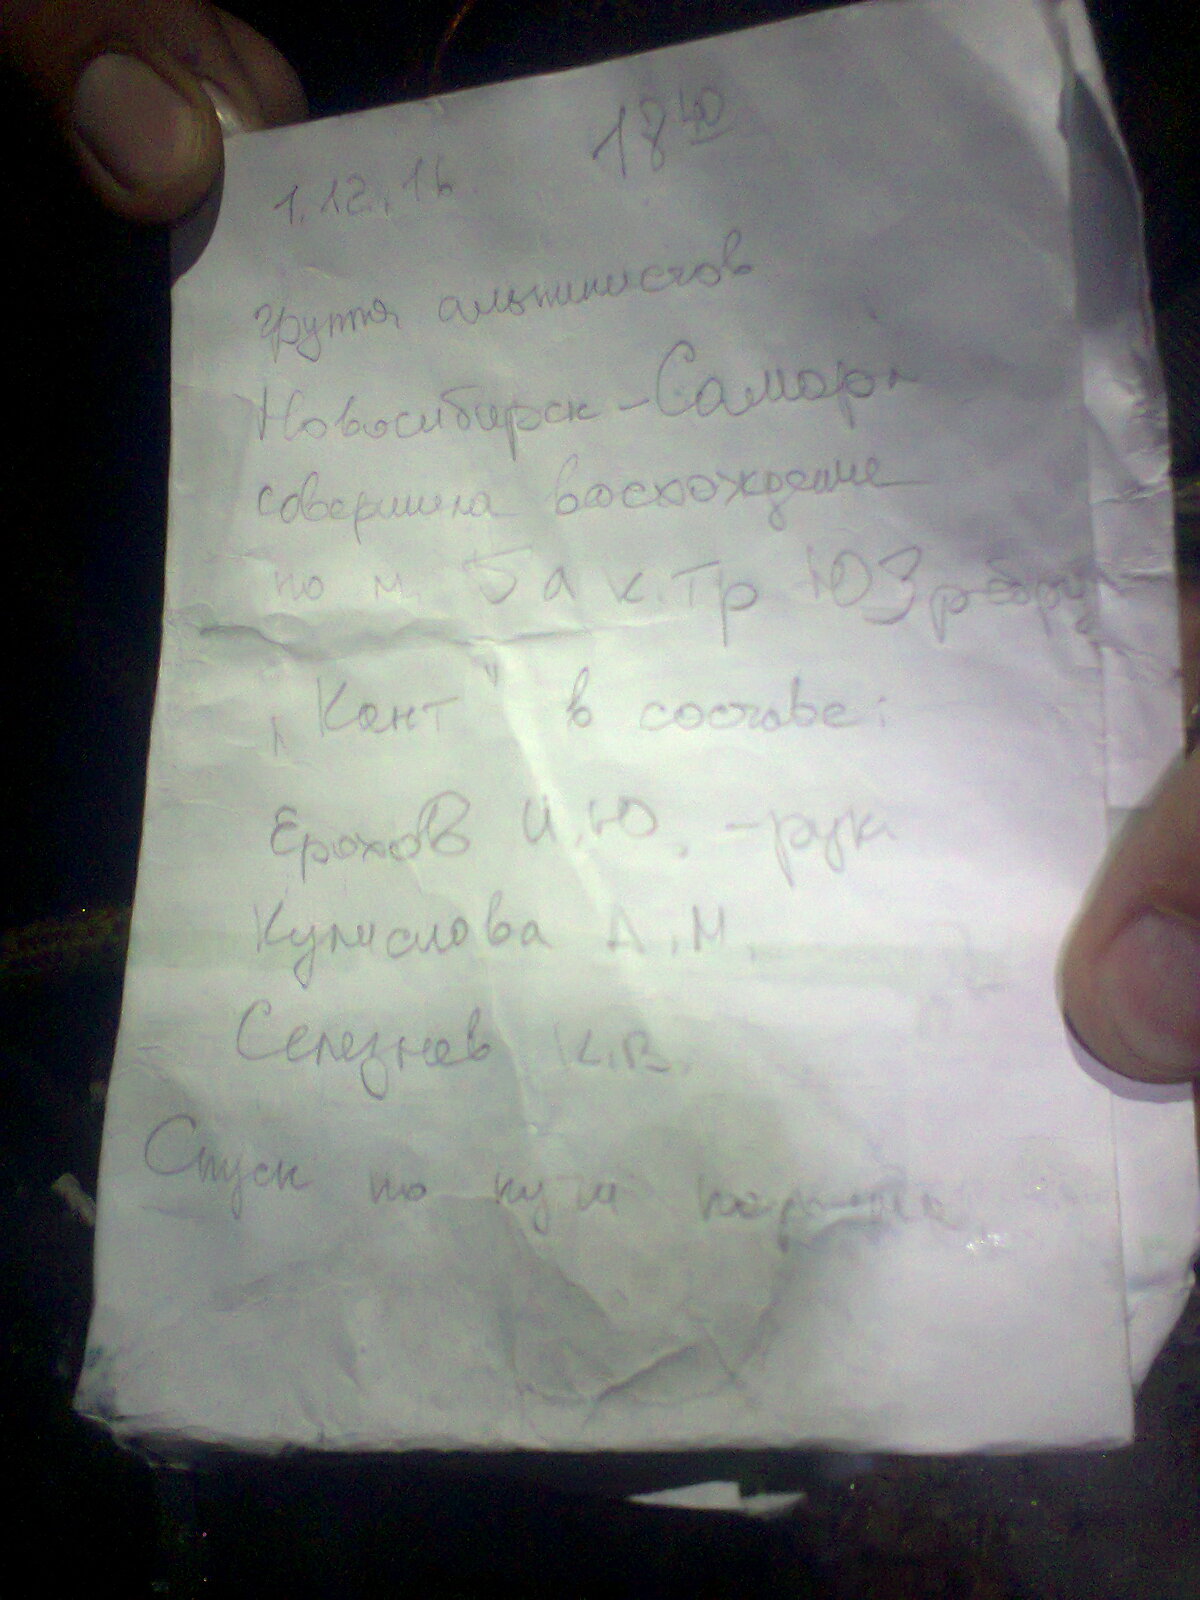 1.12.16. 18 40
группа альпинистов
Новосибирск-Самара
совершила восхождение
по м. 5а к.тр ЮЗ ребру
"Кант" в составе:
Ерохов И.Ю. - рук
А.М.
Селезнев К.В.
Спуск по пути